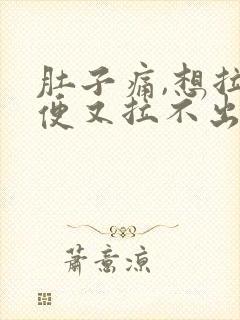 肚子痛,想拉
便又拉不出
萧意凉